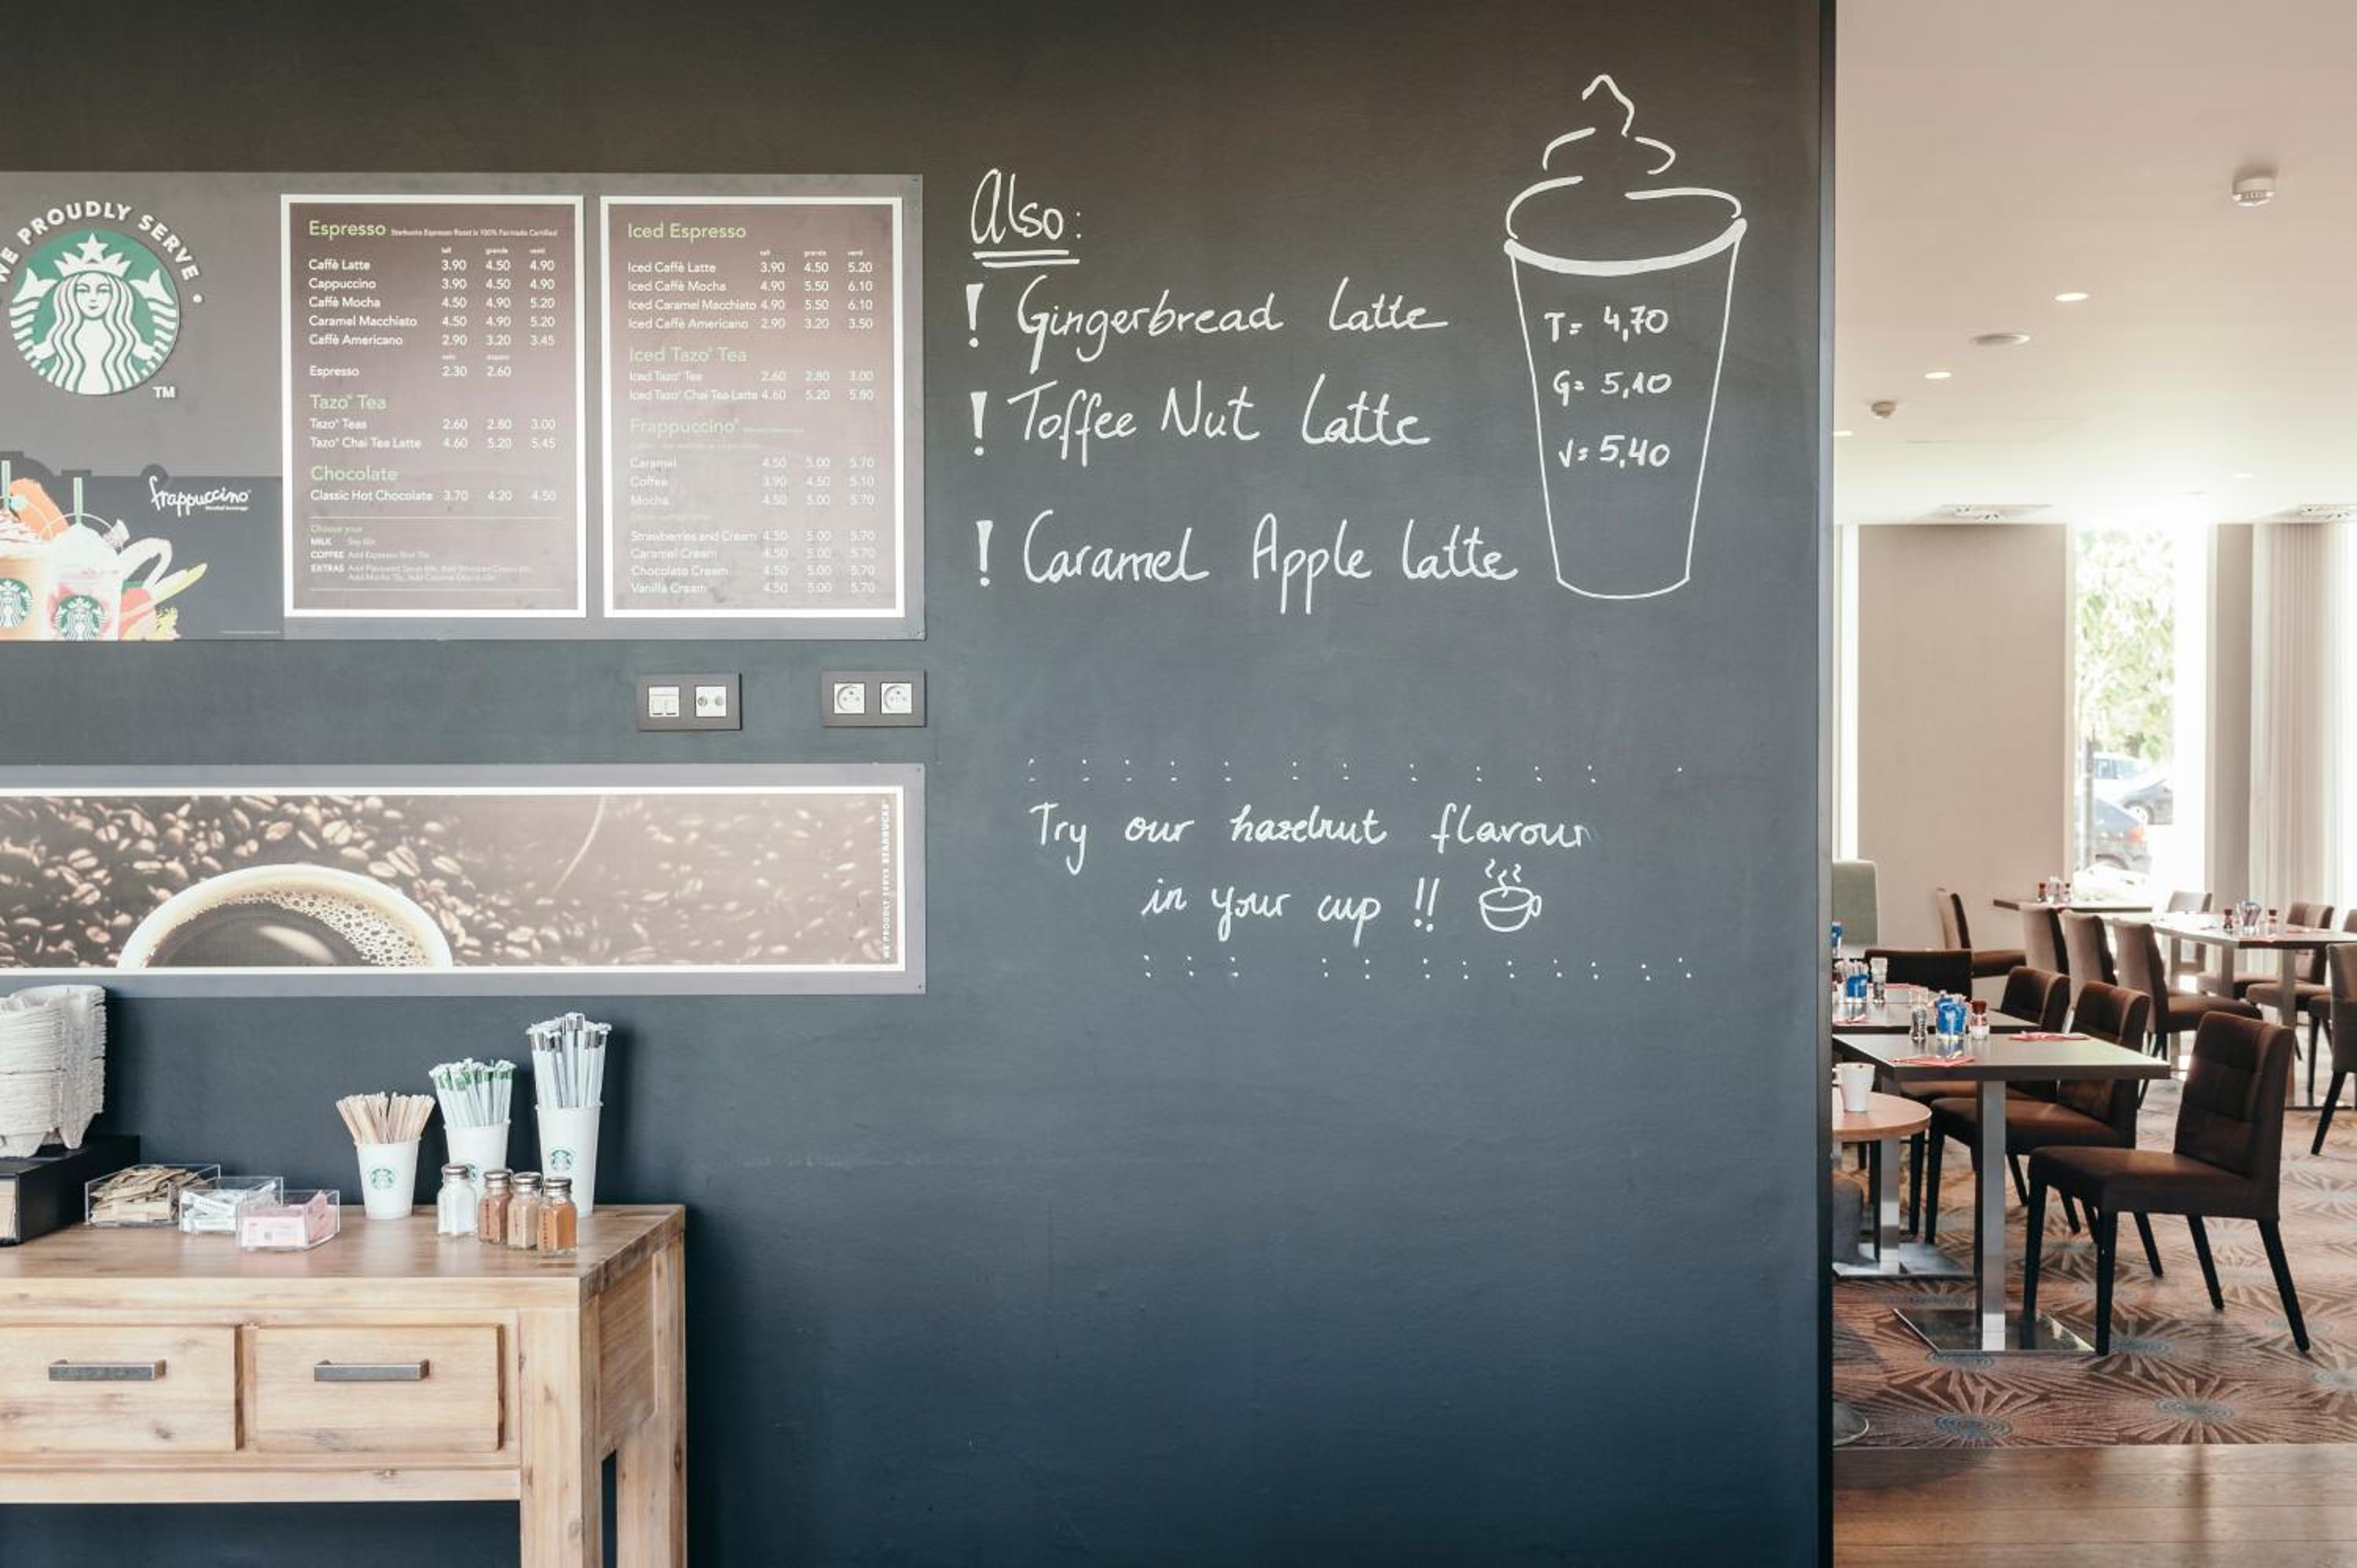 WE PROUDLY SERVE
TM
frappuccino
Espresso Starbucks Espresso Roast is 100% Fairtrade Certified
tall grande venti
Caffè Latte 3.90 4.50 4.90
Cappuccino 3.90 4.50 4.90
Caffè Mocha 4.50 4.90 5.20
Caramel Macchiato 4.50 4.90 5.20
Caffè Americano 2.90 3.20 3.45
solo doppio
Espresso 2.30 2.60
Tazo® Tea
Tazo® Teas 2.60 2.80 3.00
Tazo® Chai Tea Latte 4.60 5.20 5.45
Chocolate
Classic Hot Chocolate 3.70 4.20 4.50
Choose your
MILK Soy
COFFEE Add Espresso Shot
EXTRAS Add Flavored Syrup
Iced Espresso
tall grande venti
Iced Caffè Latte 3.90 4.50 5.20
Iced Caffè Mocha 4.90 5.50 6.10
Iced Caramel Macchiato 4.90 5.50 6.10
Iced Caffè Americano 2.90 3.20 3.50
Iced Tazo® Tea
Iced Tazo® Tea 2.60 2.80 3.00
Iced Tazo® Chai Tea Latte 4.60 5.20 5.80
Frappuccino®
Caramel 4.50 5.00 5.70
Coffee 3.90 4.50 5.10
Mocha 4.50 5.00 5.70
Strawberries and Cream 4.50 5.00 5.70
Caramel Cream 4.50 5.00 5.70
Chocolate Cream 4.50 5.00 5.70
Vanilla Cream 4.50 5.00 5.70
Also:
! Gingerbread Latte
! Toffee Nut Latte
! Caramel Apple Latte
T= 4,70
G= 5,10
V= 5,40
Try our hazelnut flavour
in your cup !!
WE PROUDLY SERVE STARBUCKS